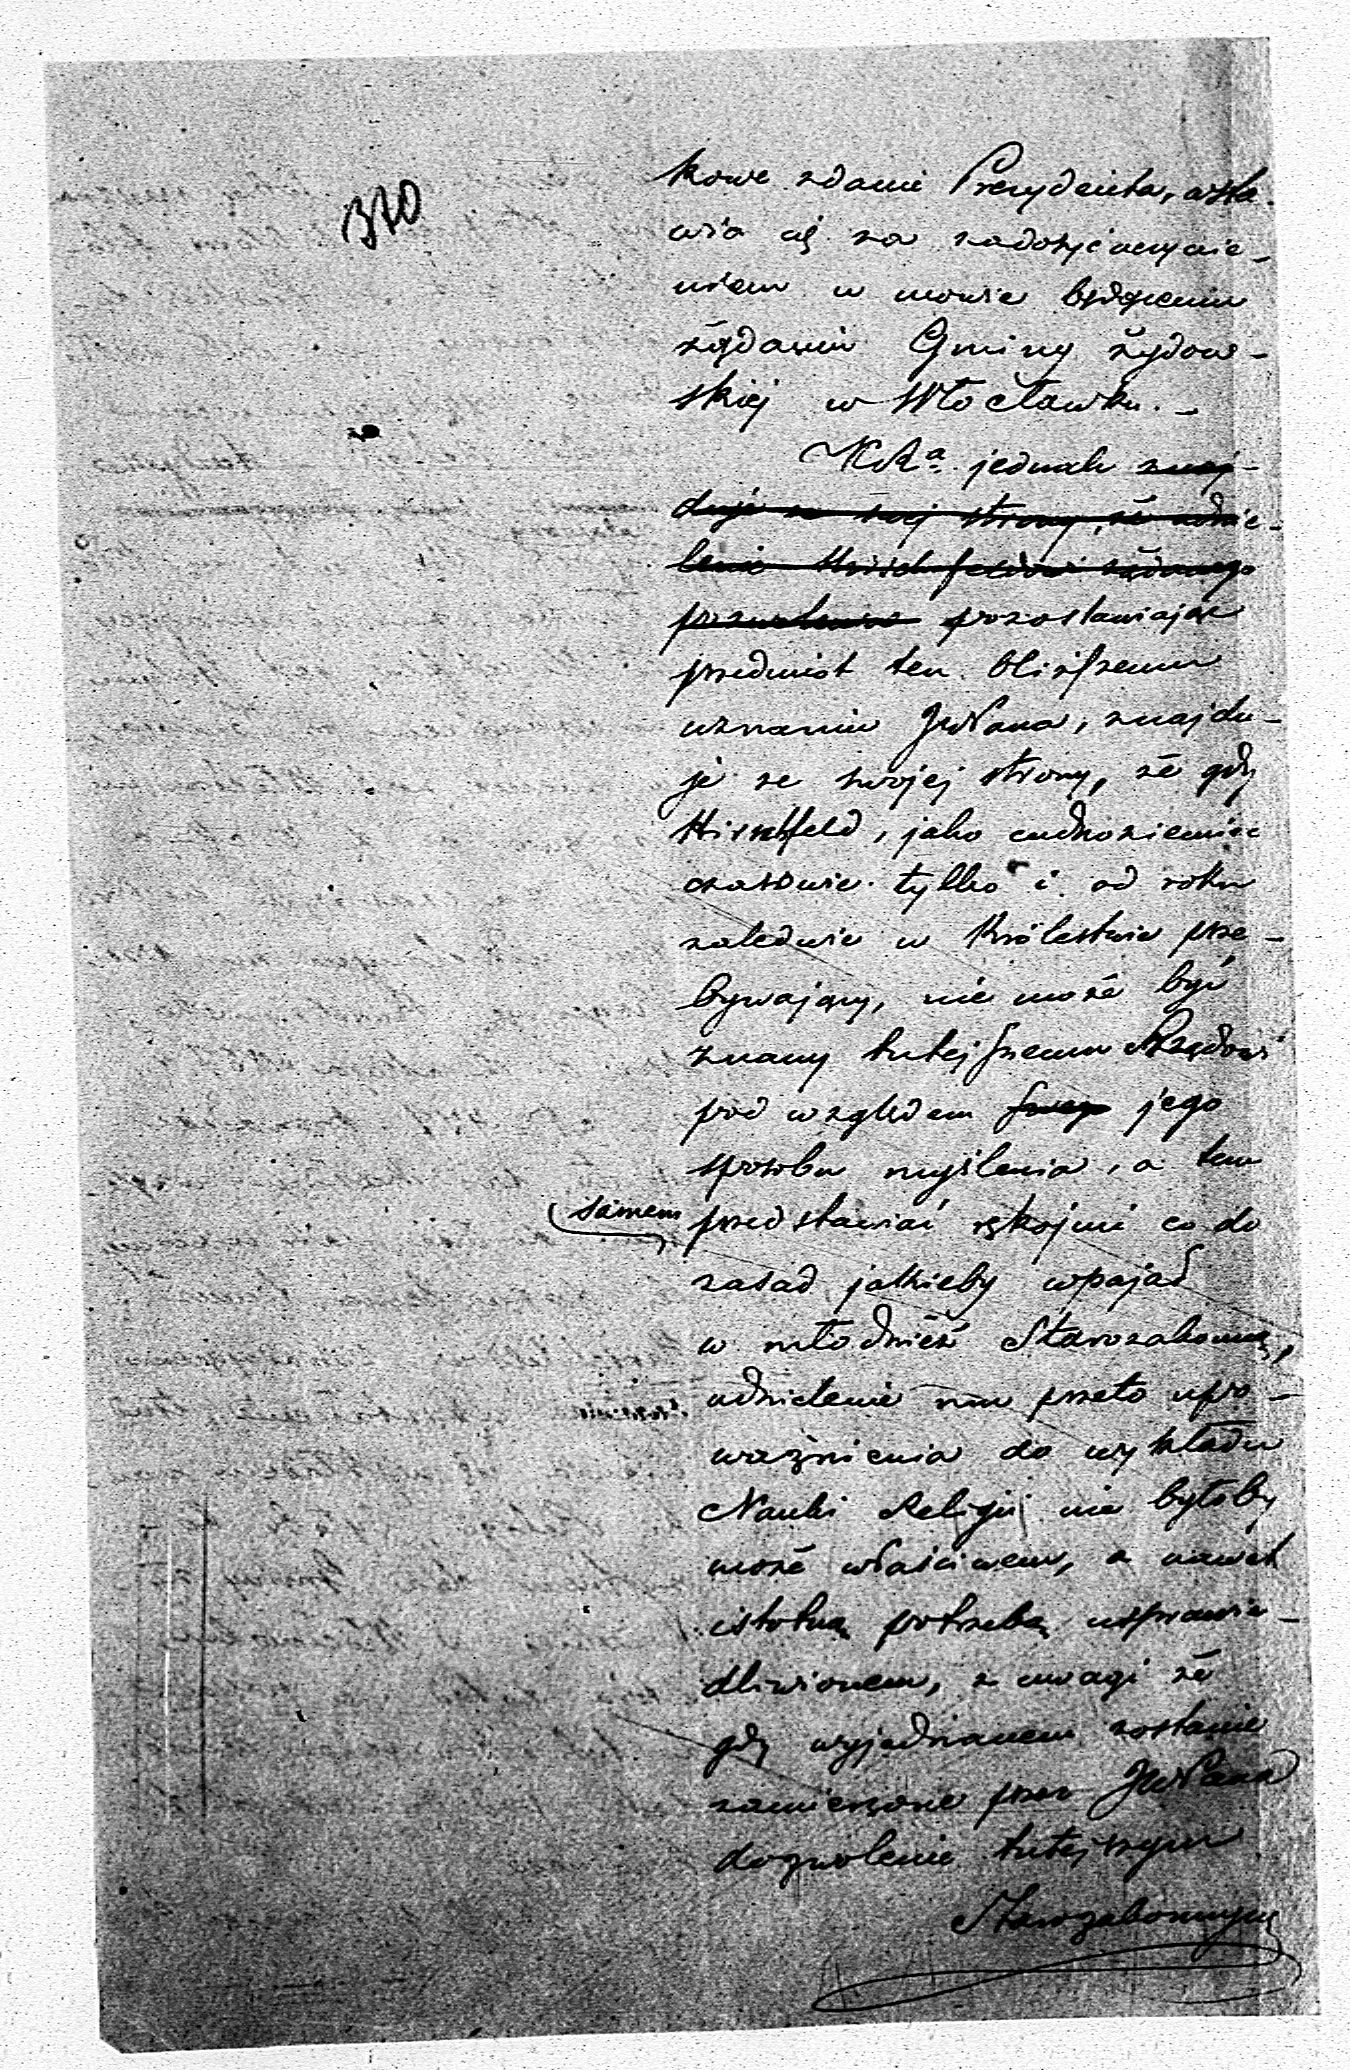 370
kowe zdanie Prezydenta, wsta-
wia się za zadosyćuczynie-
niem w mowie będącemu
żądaniu Gminy żydow-
skiej w Włocławku. -
KRa. jednak znaj-
duje ze swej strony, że udzie-
lenie Hirschfeldowi żądanego
pozwolenia pozostawiając
przedmiot ten bliższemu
uznaniu JWPana, znajdu-
je ze swojej strony, że gdy
Hirschfeld, jako cudzoziemiec
czasowie tylko i od roku
zaledwie w Królestwie prze-
bywający, nie może być
znany tutejszemu Rządowi
pod względem swego jego
sposobu myślenia, a tem
samem przedstawiać rękojmi co do
zasad jakieby wpajał
w młodzież Starozakonną,
udzielenie mu przeto upo-
ważnienia do wykładu
Nauki Religii nie byłoby
może właściwem, a nawet
istotną potrzebą usprawie-
dliwionem, z uwagi że
gdy wyjednanem zostanie
zamierzone przez JWPana
dozwolenie tutejszym
Starozakonnym